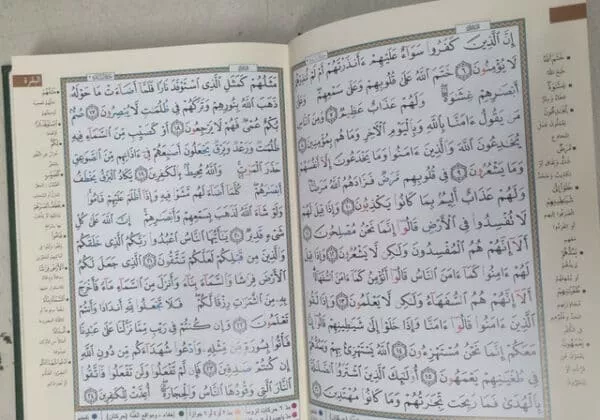 إِنَّ الَّذِينَ كَفَرُوا سَوَاءٌ عَلَيْهِمْ ءَأَنذَرْتَهُمْ أَمْ لَمْ
لَا يُؤْمِنُونَ ٦ خَتَمَ اللَّهُ عَلَىٰ قُلُوبِهِمْ وَعَلَىٰ سَمْعِهِمْ وَعَلَىٰ
أَبْصَٰرِهِمْ غِشَٰوَةٌ وَلَهُمْ عَذَابٌ عَظِيمٌ ٧ وَمِنَ النَّاسِ
مَن يَقُولُ ءَامَنَّا بِاللَّهِ وَبِالْيَوْمِ الْآخِرِ وَمَا هُم بِمُؤْمِنِينَ ٨
يُخَٰدِعُونَ اللَّهَ وَالَّذِينَ ءَامَنُوا وَمَا يَخْدَعُونَ إِلَّا أَنفُسَهُمْ
وَمَا يَشْعُرُونَ ٩ فِي قُلُوبِهِم مَّرَضٌ فَزَادَهُمُ اللَّهُ مَرَضًا
وَلَهُمْ عَذَابٌ أَلِيمٌ بِمَا كَانُوا يَكْذِبُونَ ١٠ وَإِذَا قِيلَ لَهُمْ
لَا تُفْسِدُوا فِي الْأَرْضِ قَالُوا إِنَّمَا نَحْنُ مُصْلِحُونَ ١١
أَلَا إِنَّهُمْ هُمُ الْمُفْسِدُونَ وَلَٰكِن لَّا يَشْعُرُونَ ١٢ وَإِذَا قِيلَ
لَهُمْ ءَامِنُوا كَمَا ءَامَنَ النَّاسُ قَالُوا أَنُؤْمِنُ كَمَا ءَامَنَ السُّفَهَاءُ
أَلَا إِنَّهُمْ هُمُ السُّفَهَاءُ وَلَٰكِن لَّا يَعْلَمُونَ ١٣ وَإِذَا لَقُوا
الَّذِينَ ءَامَنُوا قَالُوا ءَامَنَّا وَإِذَا خَلَوْا إِلَىٰ شَيَٰطِينِهِمْ قَالُوا إِنَّا
مَعَكُمْ إِنَّمَا نَحْنُ مُسْتَهْزِءُونَ ١٤ اللَّهُ يَسْتَهْزِئُ بِهِمْ وَيَمُدُّهُمْ
فِي طُغْيَٰنِهِمْ يَعْمَهُونَ ١٥ أُولَٰئِكَ الَّذِينَ اشْتَرَوُا الضَّلَٰلَةَ
بِالْهُدَىٰ فَمَا رَبِحَت تِّجَٰرَتُهُمْ وَمَا كَانُوا مُهْتَدِينَ ١٦
خَتَمَ اللَّهُ
طبع الله
غِشَٰوَةٌ
مَّرَضٌ
يَمُدُّهُمْ
يَعْمَهُونَ
البقرة
مَثَلُهُمْ كَمَثَلِ الَّذِي اسْتَوْقَدَ نَارًا فَلَمَّا أَضَاءَتْ مَا حَوْلَهُ
ذَهَبَ اللَّهُ بِنُورِهِمْ وَتَرَكَهُمْ فِي ظُلُمَٰتٍ لَّا يُبْصِرُونَ ١٧ صُمٌّ
بُكْمٌ عُمْيٌ فَهُمْ لَا يَرْجِعُونَ ١٨ أَوْ كَصَيِّبٍ مِّنَ السَّمَاءِ فِيهِ
ظُلُمَٰتٌ وَرَعْدٌ وَبَرْقٌ يَجْعَلُونَ أَصَٰبِعَهُمْ فِي ءَاذَانِهِم مِّنَ الصَّوَٰعِقِ
حَذَرَ الْمَوْتِ وَاللَّهُ مُحِيطٌ بِالْكَٰفِرِينَ ١٩ يَكَادُ الْبَرْقُ يَخْطَفُ
أَبْصَٰرَهُمْ كُلَّمَا أَضَاءَ لَهُم مَّشَوْا فِيهِ وَإِذَا أَظْلَمَ عَلَيْهِمْ قَامُوا
وَلَوْ شَاءَ اللَّهُ لَذَهَبَ بِسَمْعِهِمْ وَأَبْصَٰرِهِمْ إِنَّ اللَّهَ عَلَىٰ كُلِّ
شَيْءٍ قَدِيرٌ ٢٠ يَٰأَيُّهَا النَّاسُ اعْبُدُوا رَبَّكُمُ الَّذِي خَلَقَكُمْ
وَالَّذِينَ مِن قَبْلِكُمْ لَعَلَّكُمْ تَتَّقُونَ ٢١ الَّذِي جَعَلَ لَكُمُ
الْأَرْضَ فِرَٰشًا وَالسَّمَاءَ بِنَاءً وَأَنزَلَ مِنَ السَّمَاءِ مَاءً فَأَخْرَجَ
بِهِ مِنَ الثَّمَرَٰتِ رِزْقًا لَّكُمْ فَلَا تَجْعَلُوا لِلَّهِ أَندَادًا وَأَنتُمْ
تَعْلَمُونَ ٢٢ وَإِن كُنتُمْ فِي رَيْبٍ مِّمَّا نَزَّلْنَا عَلَىٰ عَبْدِنَا
فَأْتُوا بِسُورَةٍ مِّن مِّثْلِهِ وَادْعُوا شُهَدَاءَكُم مِّن دُونِ اللَّهِ
إِن كُنتُمْ صَٰدِقِينَ ٢٣ فَإِن لَّمْ تَفْعَلُوا وَلَن تَفْعَلُوا فَاتَّقُوا
النَّارَ الَّتِي وَقُودُهَا النَّاسُ وَالْحِجَارَةُ أُعِدَّتْ لِلْكَٰفِرِينَ ٢٤